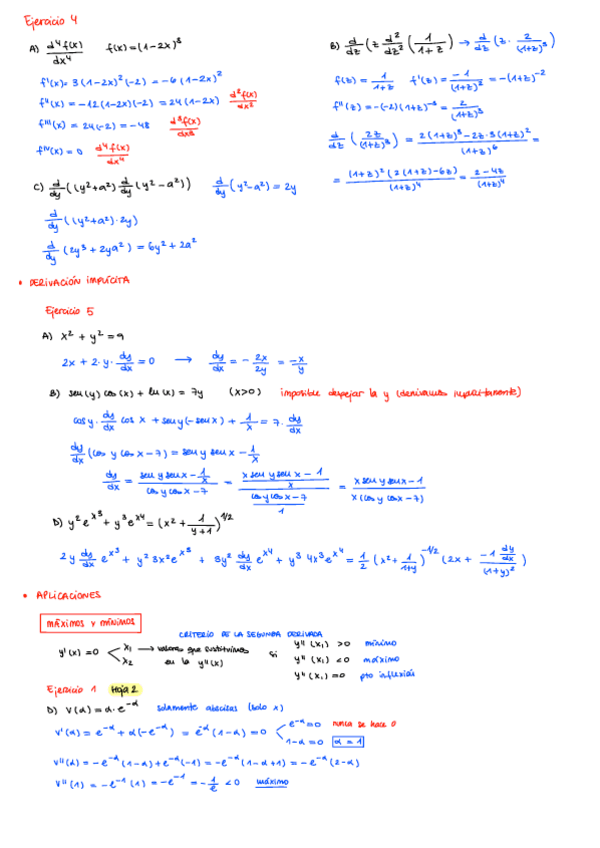 Ejercicio 4
A) d⁴f(x)/dx⁴   f(x)=(1-2x)³
f'(x)= 3(1-2x)²(-2) = -6(1-2x)²
f''(x) = -12(1-2x)(-2) = 24(1-2x)   d²f(x)/dx²
f'''(x) = 24(-2) = -48   d³f(x)/dx³
f^IV(x) = 0   d⁴f(x)/dx⁴
B) d/dz (z d²/dz² (1/(1+z)) → d/dz (z · 2/(1+z)³)
f(z) = 1/(1+z)   f'(z) = -1/(1+z)² = -(1+z)⁻²
f''(z) = -(-2)(1+z)⁻³ = 2/(1+z)³
d/dz (2z/(1+z)³) = (2(1+z)³ - 2z·3(1+z)²)/(1+z)⁶ =
= (1+z)²(2(1+z)-6z)/(1+z)⁴ = (2-4z)/(1+z)⁴
C) d/dy ((y²+a²) d/dy (y²-a²))   d/dy (y²-a²) = 2y
d/dy ((y²+a²)·2y)
d/dy (2y³ + 2ya²) = 6y² + 2a²
• DERIVACIÓN IMPLÍCITA
Ejercicio 5
A) x² + y² = 9
2x + 2·y·dy/dx = 0 → dy/dx = -2x/2y = -x/y
B) sen(y) cos(x) + ln(x) = 7y   (x>0)   imposible despejar la y (derivamos implícitamente)
cos y · dy/dx cos x + sen y (-sen x) + 1/x = 7 · dy/dx
dy/dx (cos y cos x - 7) = sen y sen x - 1/x
dy/dx = (sen y sen x - 1/x)/(cos y cos x - 7) = ((x sen y sen x - 1)/x)/((cos y cos x - 7)/1) = (x sen y sen x - 1)/(x(cos y cos x - 7))
D) y² e^x³ + y³ e^x⁴ = (x² + 1/(y+1))^1/2
2y dy/dx e^x³ + y² 3x² e^x³ + 3y² dy/dx e^x⁴ + y³ 4x³ e^x⁴ = 1/2 (x² + 1/(1+y))^-1/2 (2x + (-1 dy/dx)/(1+y)²)
• APLICACIONES
MÁXIMOS Y MÍNIMOS
CRITERIO DE LA SEGUNDA DERIVADA
y'(x) = 0 < x₁ x₂ → valores que sustituimos en la y''(x)   si
y''(x₁) > 0 mínimo
y''(x₁) < 0 máximo
y''(x₁) = 0 pto inflexión
Ejercicio 1 Hoja 2
D) V(α) = α·e^-α   solamente abscisas (solo x)
V'(α) = e^-α + α(-e^-α) = e^-α(1-α) = 0 <
e^-α = 0   nunca se hace 0
1-α = 0   α = 1
V''(α) = -e^-α(1-α) + e^-α(-1) = -e^-α(1-α+1) = -e^-α(2-α)
V''(1) = -e^-1(1) = -e^-1 = -1/e < 0   máximo